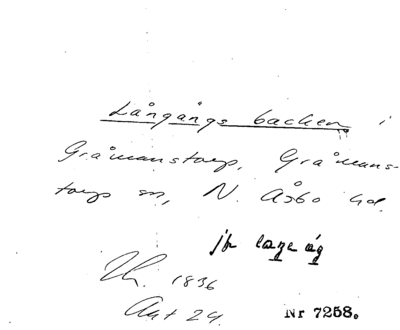 Långångs backen i
Gråmanstorp, Gråmans-
torps sn, N. Åsbo hd.
jfr
1836
Akt 24.
Nr 7258.